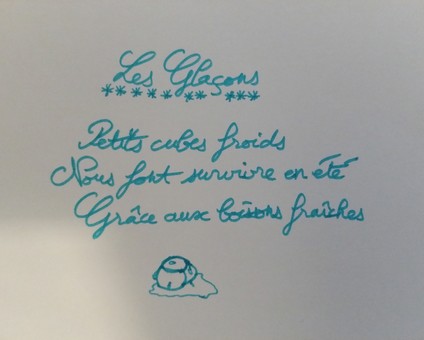 Les Glaçons
**********
Petits cubes froids
Nous font survivre en été
Grâce aux boissons fraîches